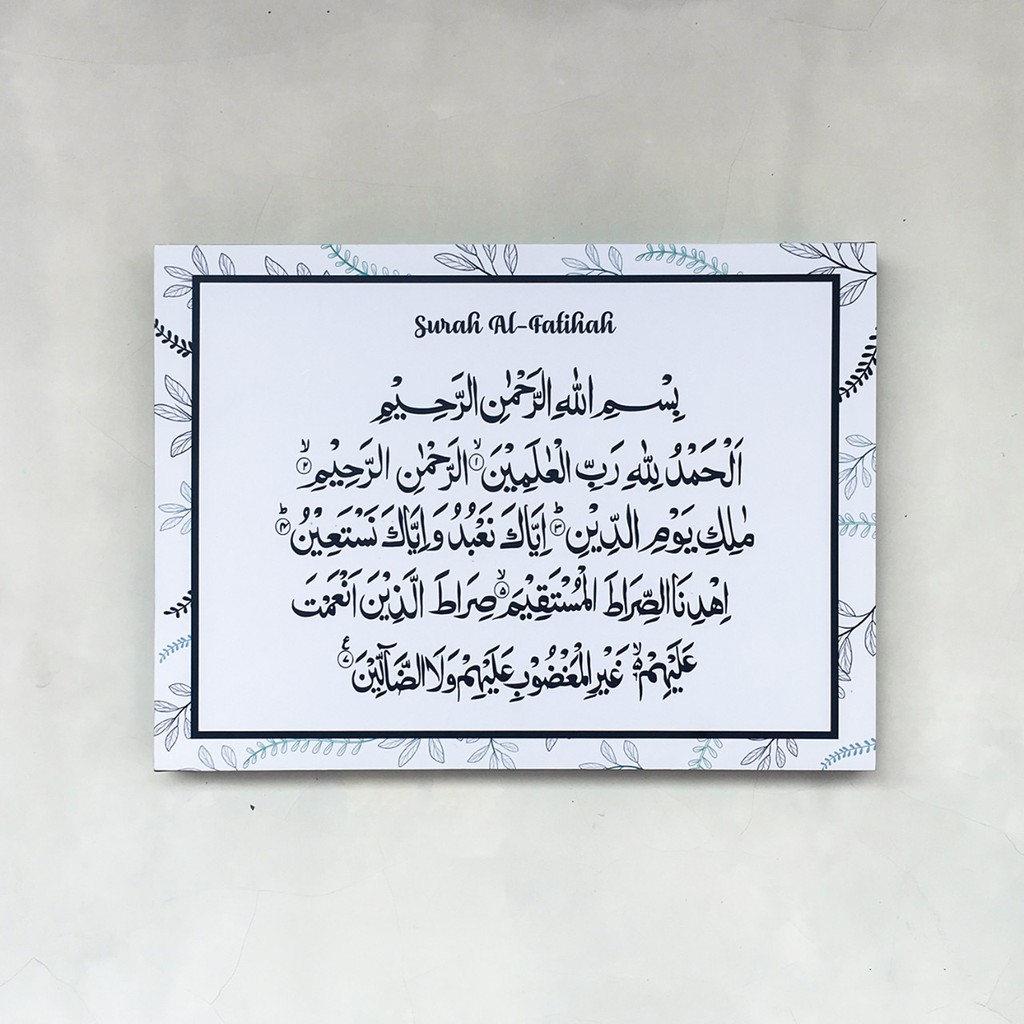 Surah Al-Fatihah
بِسْمِ اللهِ الرَّحْمٰنِ الرَّحِيْمِ
اَلْحَمْدُ لِلّٰهِ رَبِّ الْعٰلَمِيْنَۙ ١ الرَّحْمٰنِ الرَّحِيْمِۙ ٢
مٰلِكِ يَوْمِ الدِّيْنِۗ ٣ اِيَّاكَ نَعْبُدُ وَاِيَّاكَ نَسْتَعِيْنُۗ ٤
اِهْدِنَا الصِّرَاطَ الْمُسْتَقِيْمَۙ ٥ صِرَاطَ الَّذِيْنَ اَنْعَمْتَ
عَلَيْهِمْ ۙ٦ غَيْرِ الْمَغْضُوْبِ عَلَيْهِمْ وَلَا الضَّاۤلِّيْنَࣖ ٧